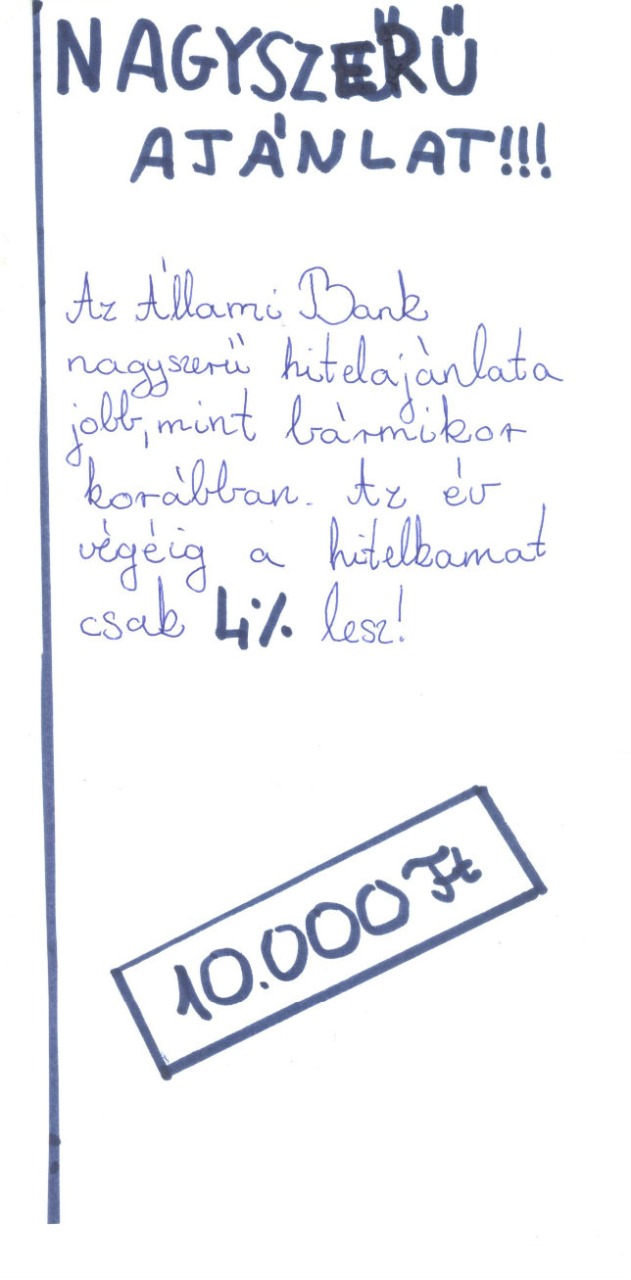 NAGYSZERŰ
AJÁNLAT!!!
Az Állami Bank
nagyszerű hitelajánlata
jobb, mint bármikor
korábban. Az év
végéig a hitelkamat
csak 4% lesz!
10.000 Ft